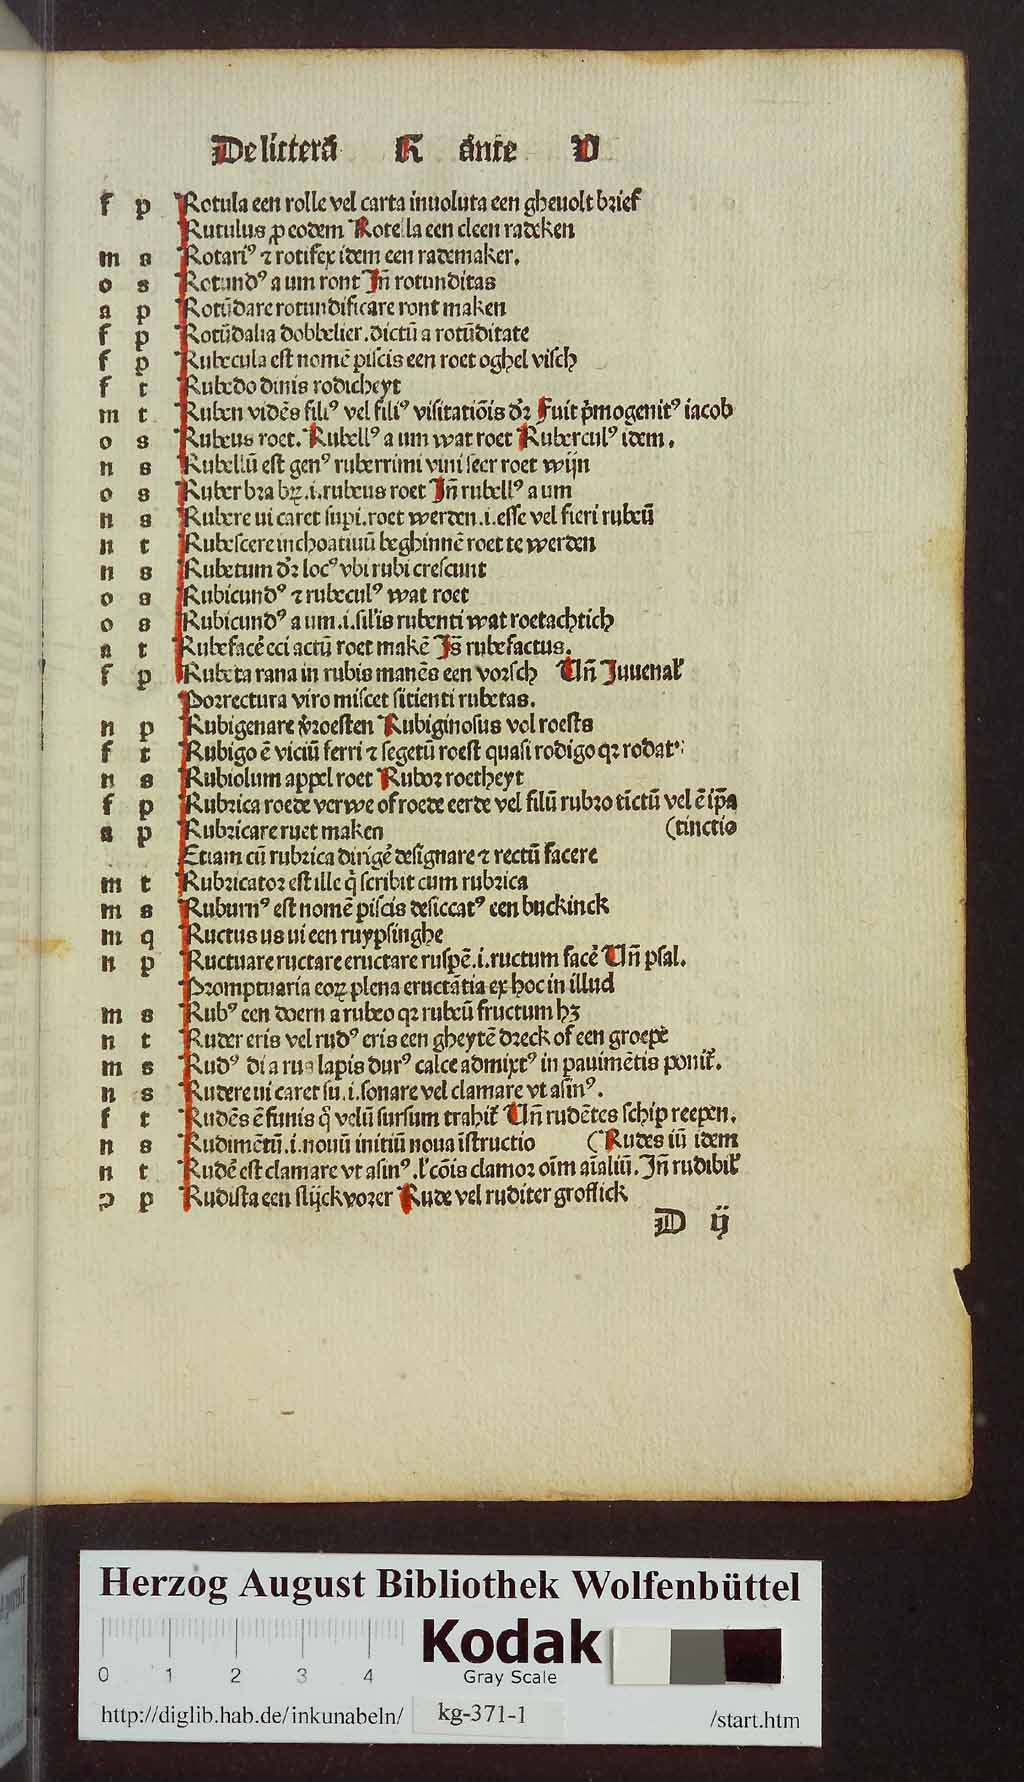 De litterā R ante V
f p Rotula een rolle vel carta inuoluta een gheuolt brief
Rutulus ꝓ eodem Rotella een cleen radeken
m s Rotariꝰ ⁊ rotifex idem een rademaker.
o s Rotundꝰ a um ront Jn̄ rotunditas
a p Rotūdare rotundificare ront maken
f p Rotūdalia dobbelier .dictū a rotūditate
f p Rubecula est nomē piscis een roet oghel visch
f t Rubedo dinis rodicheyt
m t Ruben vidēs filiꝰ vel filiꝰ visitatiōis dr̄ Fuit p̄mogenitꝰ iacob
o s Rubeus roet. Rubellꝰ a um wat roet Ruberculꝰ idem.
n s Rubellū est genꝰ ruberrimi vini seer roet wijn
o s Ruber bra bꝝ .i. rubeus roet Jn̄ rubellꝰ a um
n s Rubere ui caret supi. roet werden .i. esse vel fieri rubeū
n t Rubescere inchoatiuū beghinnē roet te werden
n s Rubetum dr̄ locꝰ vbi rubi crescunt
o s Rubicundꝰ ⁊ rubeculꝰ wat roet
o s Rubicundꝰ a um .i. sil̓is rubenti wat roetachtich
a t Rubefacē eci actū roet makē Js̄ rubefactus.
f p Rubeta rana in rubis manēs een vorsch Vn̄ Juuenal̓
Porrectura viro miscet sitienti rubetas.
n p Rubigenare v̓roesten Rubiginosus vol roests
f t Rubigo ē viciū ferri ⁊ segetū roest quasi rodigo qꝛ rodat
n s Rubiolum appel roet Rubor roetheyt
f p Rubrica roede verwe of roede eerde vel filū rubro tīctū vel ē ip̄a
a p Rubricare ruet maken (tinctio
Etiam cū rubrica dirigē designare ⁊ rectū facere
m t Rubricator est ille q̇ scribit cum rubrica
m s Ruburnꝰ est nomē piscis desiccatꝰ een buckinck
m q Ructus us ui een ruypsinghe
n p Ructuare ructare eructare ruspē .i. ructum facē Vn̄ psal.
Promptuaria eoꝝ plena eructātia ex hoc in illud
m s Rubꝰ een doern a rubeo qꝛ rubeū fructum hꝫ
n t Ruder eris vel rudꝰ eris een gheytē dreck of een groepē
m s Rudꝰ di a rus lapis durꝰ calce admixtꝰ in pauimētis ponit̄.
n s Rudere ui caret su .i. sonare vel clamare vt asinꝰ.
f t Rudēs ē funis q̊ velū sursum trahit̄ Vn̄ rudētes schip reepen.
n s Rudimētū .i. nouū initiū noua īstructio (Rudes iū idem
n t Rudē est clamare vt asinꝰ. l̓ cōis clamor oīm aīaliū. Jn̄ rudibil̓
ɔ p Rudista een slijckvorer Rude vel ruditer groflick
D ij
Herzog August Bibliothek Wolfenbüttel
Kodak
Gray Scale
0 1 2 3 4
http://diglib.hab.de/inkunabeln/ kg-371-1 /start.htm